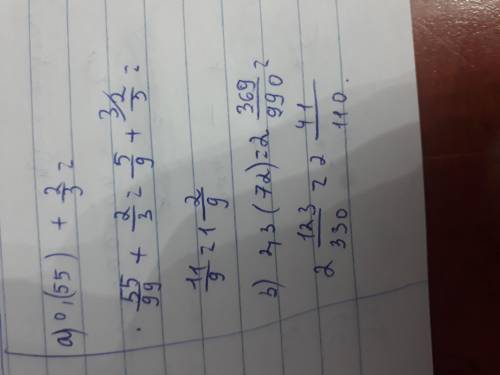 a) 0,(55) + 2/3 =
55/99 + 2/3 = 5/9 + ³⁄ 2/3 =
11/9 = 1 2/9
b) 2,3(72) = 2 369/990 =
2 123/330 = 2 41/110.